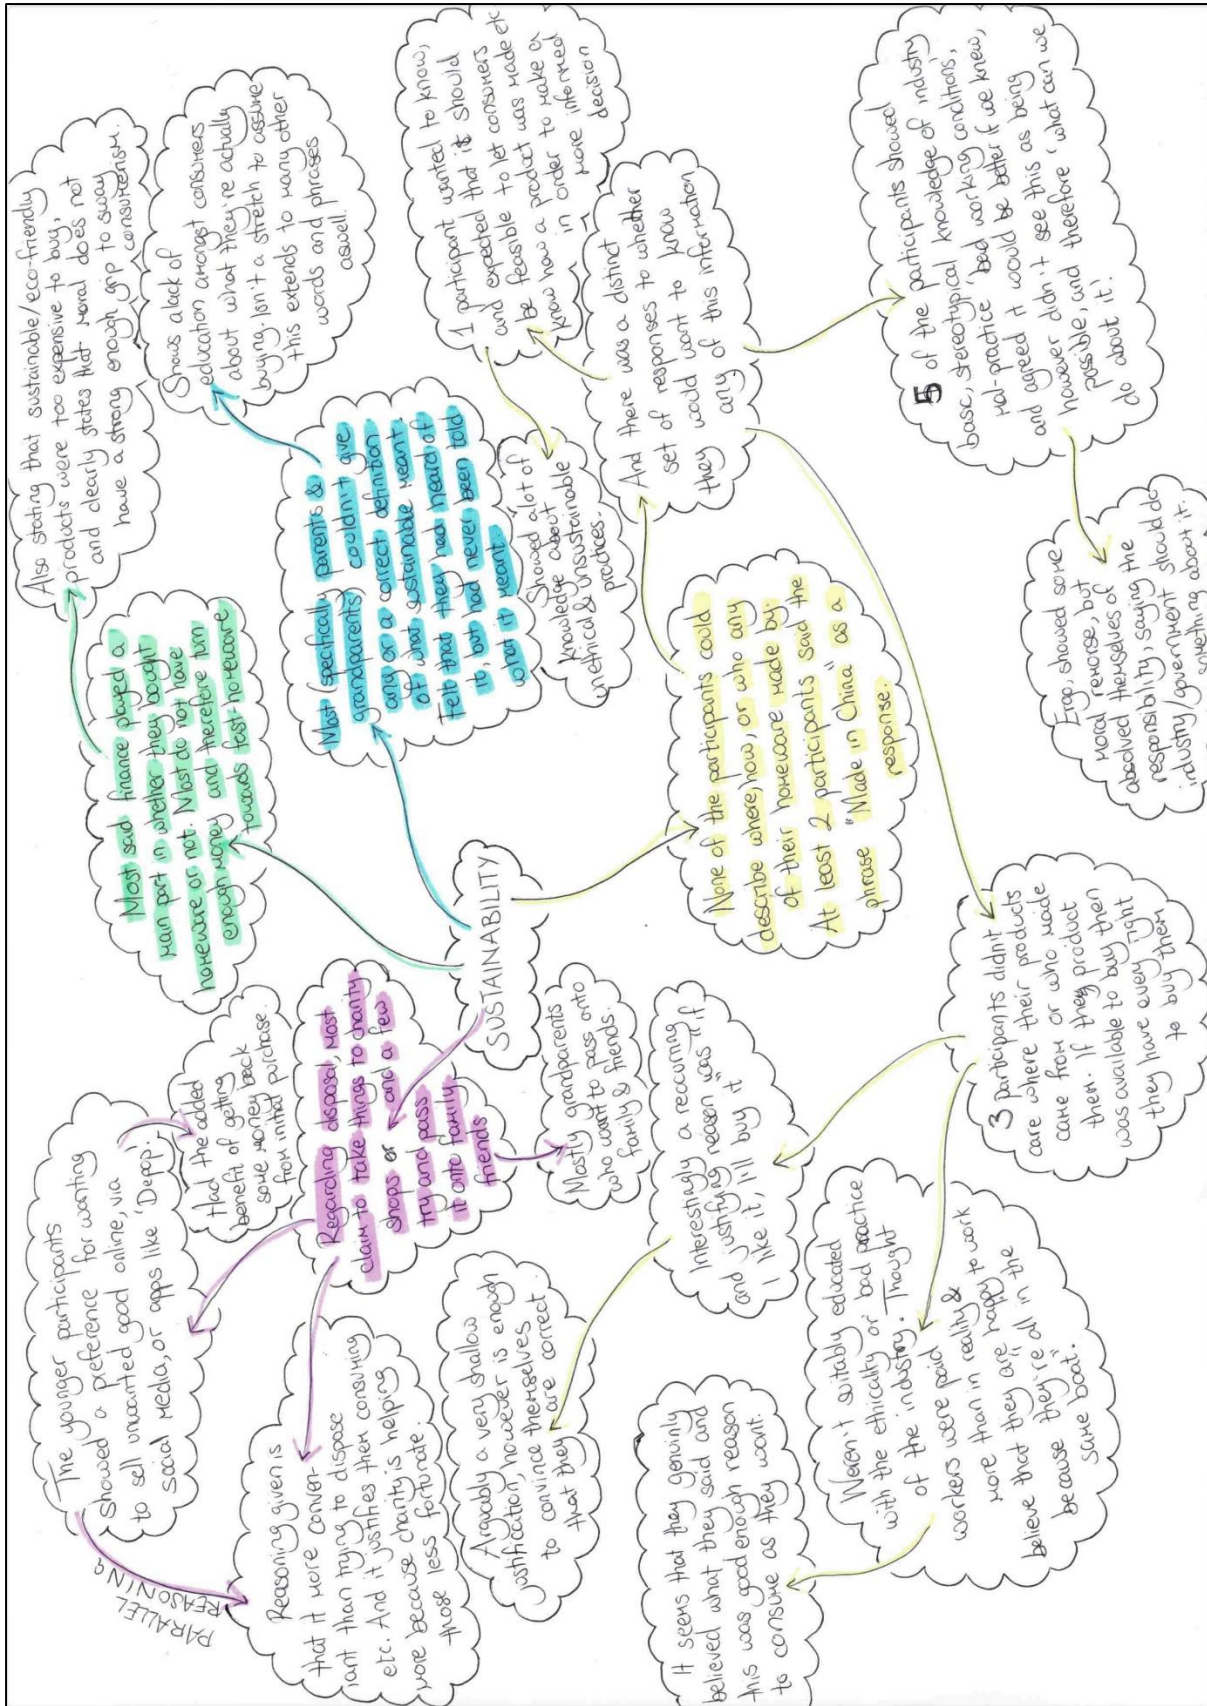 SUSTAINABILITY
Most said finance played a
main part in whether they bought
homeware or not. Most do not have
enough money and therefore turn
towards fast homeware
Also stating that sustainable/eco-friendly
products were too expensive to buy,
and clearly states that moral does not
have a strong enough grip to sway
consumerism.
Most (specifically parents &
grandparents) couldn't give
any or a correct definition
of what sustainable meant.
Felt that they had heard of
it, but had never been told
what it meant.
Shows a lack of
education amongst consumers
about what they're actually
buying. Isn't a stretch to assume
this extends to many other
words and phrases
aswell.
None of the participants could
describe where, how, or who any
of their homeware made by.
At least 2 participants said the
phrase "Made in China" as a
response.
And there was a distinct
set of responses to whether
they would want to know
any of this information
1 participant wanted to know,
and expected that it should
be feasible to let consumers
know how a product was made etc
in order to make a
more informed
decision
Showed a lot of
knowledge about
unethical & unsustainable
practices.
5 of the participants showed
basic, stereotypical knowledge of industry
mal-practice, 'bad working conditions',
and agreed it would be better if we knew,
however didn't see this as being
possible, and therefore 'what can we
do about it'.
Ergo, showed some
moral remorse, but
absolved themselves of
responsibility, saying the
industry/government should do
something about it.
3 participants didn't
care where their products
came from or who made
them. If they product
was available to buy then
they have every right
to buy them
Interestingly a reccurring
and justifying reason was "if
I like it, I'll buy it"
Arguably a very shallow
justification, however is enough
to convince themselves
that they are correct
Weren't suitably educated
with the ethicality or bad practice
of the industry. Thought
workers were paid
more than in reality &
believe that they are "happy to work
because they're all in the
same boat".
It seems that they genuinly
believed what they said and
this was good enough reason
to consume as they want.
Regarding disposal, most
claim to take things to charity
shops or and a few
try and pass
it onto family
friends
Mostly grandparents
who want to pass onto
family & friends.
The younger participants
showed a preference for wanting
to sell unwanted good online, via
social media, or apps like 'Depop'.
Had the added
benefit of getting
some money back
from initial purchase.
PARALLEL
REASONING
Reasoning given is
that it more conven-
iant than trying to dispose
etc. And it justifies them consuming
more because charity is helping
those less fortunate.